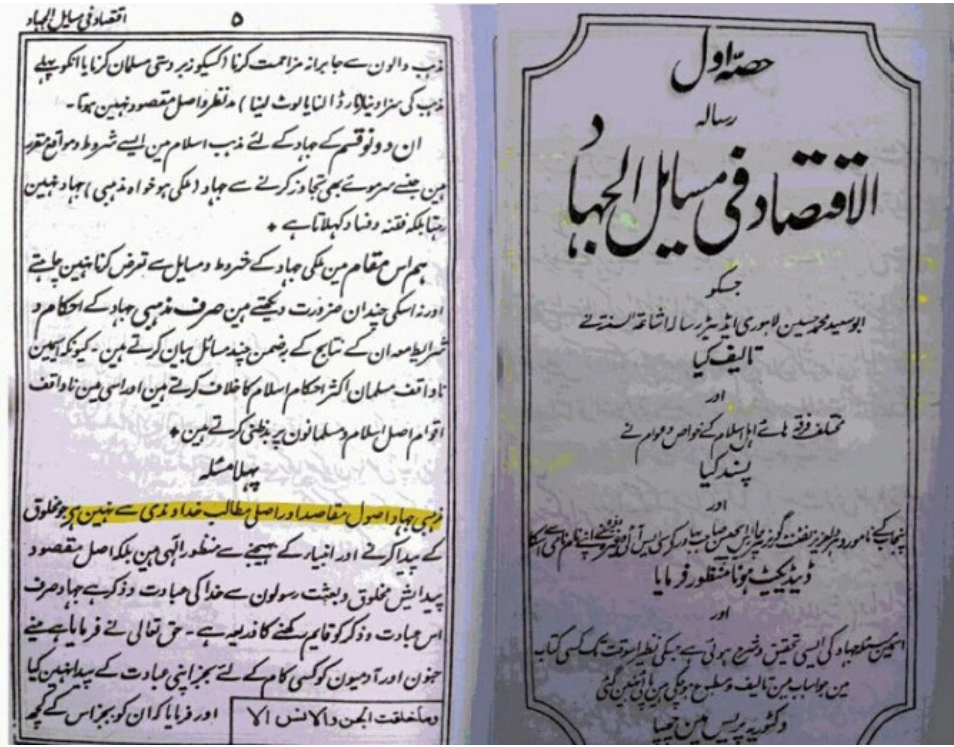 حصہ اول
رسالہ
الاقتصاد فی مسایل الجہاد
جسکو
ابو سعید محمد حسین لاہوری ایڈیٹر رسالہ اشاعۃ السنۃ نے
تالیف کیا
اور
مختلف فرقہ ہائے اہل اسلام کے خواص و عوام نے
پسند کیا
اور
پنجاب کے نامور لفٹنٹ گورنر
ڈیڈیکیٹ ہونا منظور فرمایا
اور
اسمین مسئلہ جہاد کی ایسی تحقیق و شرح ہوئی ہے جسکی نظیر اسوقت تک کسی کتاب
مین جو اس باب مین تالیف و مطبوع ہوچکی ہین پائی نہین گئی
وکٹوریہ پریس مین چھپا
اقتصاد فی مسایل الجہاد
۵
مذہب والون سے جابرانہ مزاحمت کرنا (کسیکو زبردستی مسلمان کرنا یا انکو پہلے
مذہب کی سزا دینا مار ڈالنا یا لوٹ لینا) مدنظر و اصل مقصود نہین ہوتا۔
ان دونو قسم کے جہاد کے لئے مذہب اسلام مین ایسے شروط و مواقع مقرر
ہین جنسے سر موئے بھی تجاوز کرنے سے جہاد (ملکی ہو خواہ مذہبی) جہاد نہین
رہتا بلکہ فتنہ و فساد کہلاتا ہے *
ہم اس مقام مین ملکی جہاد کے شروط و مسایل سے تعرض کرنا نہین چاہتے
اور نہ اسکی چندان ضرورت دیکھتے ہین صرف مذہبی جہاد کے احکام و
شرایط معہ ان کے نتایج کے بضمن چند مسائل بیان کرتے ہین۔ کیونکہ اسہین
ناواقف مسلمان اکثر احکام اسلام کا خلاف کرتے ہین اور اسی مین ناواقف
اقوام اصل اسلام و مسلمانون پر بدظنی کرتے ہین *
پہلا مسئلہ
مذہبی جہاد اصول مقاصد اور اصلی مطالب خداوندی سے نہین ہے جو مخلوق
کے پیدا کرنے اور انبیار کے بھیجنے سے منظور آلٰہی ہین بلکہ اصل مقصود
پیدایش مخلوق و بعثت رسولون سے خدا کی عبادت و ذکر ہے جہاد صرف
اس عبادت و ذکر کو قایم رکھنے کا ذریعہ ہے۔ حق تعالیٰ نے فرمایا ہے مینے
جنون اور آدمیون کو کسی کام کے لئے بجز اپنی عبادت کے پیدا نہین کیا
وما خلقت الجن والانس الا
اور فرمایا کہ ان کو بجز اس کے کچھ